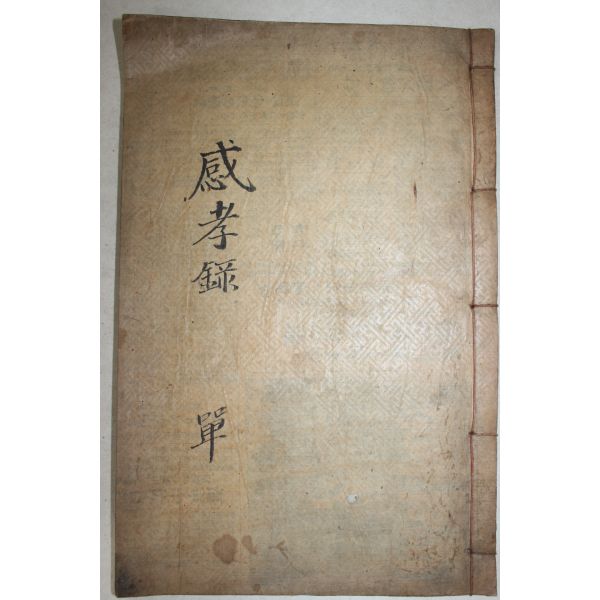 感孝錄
單